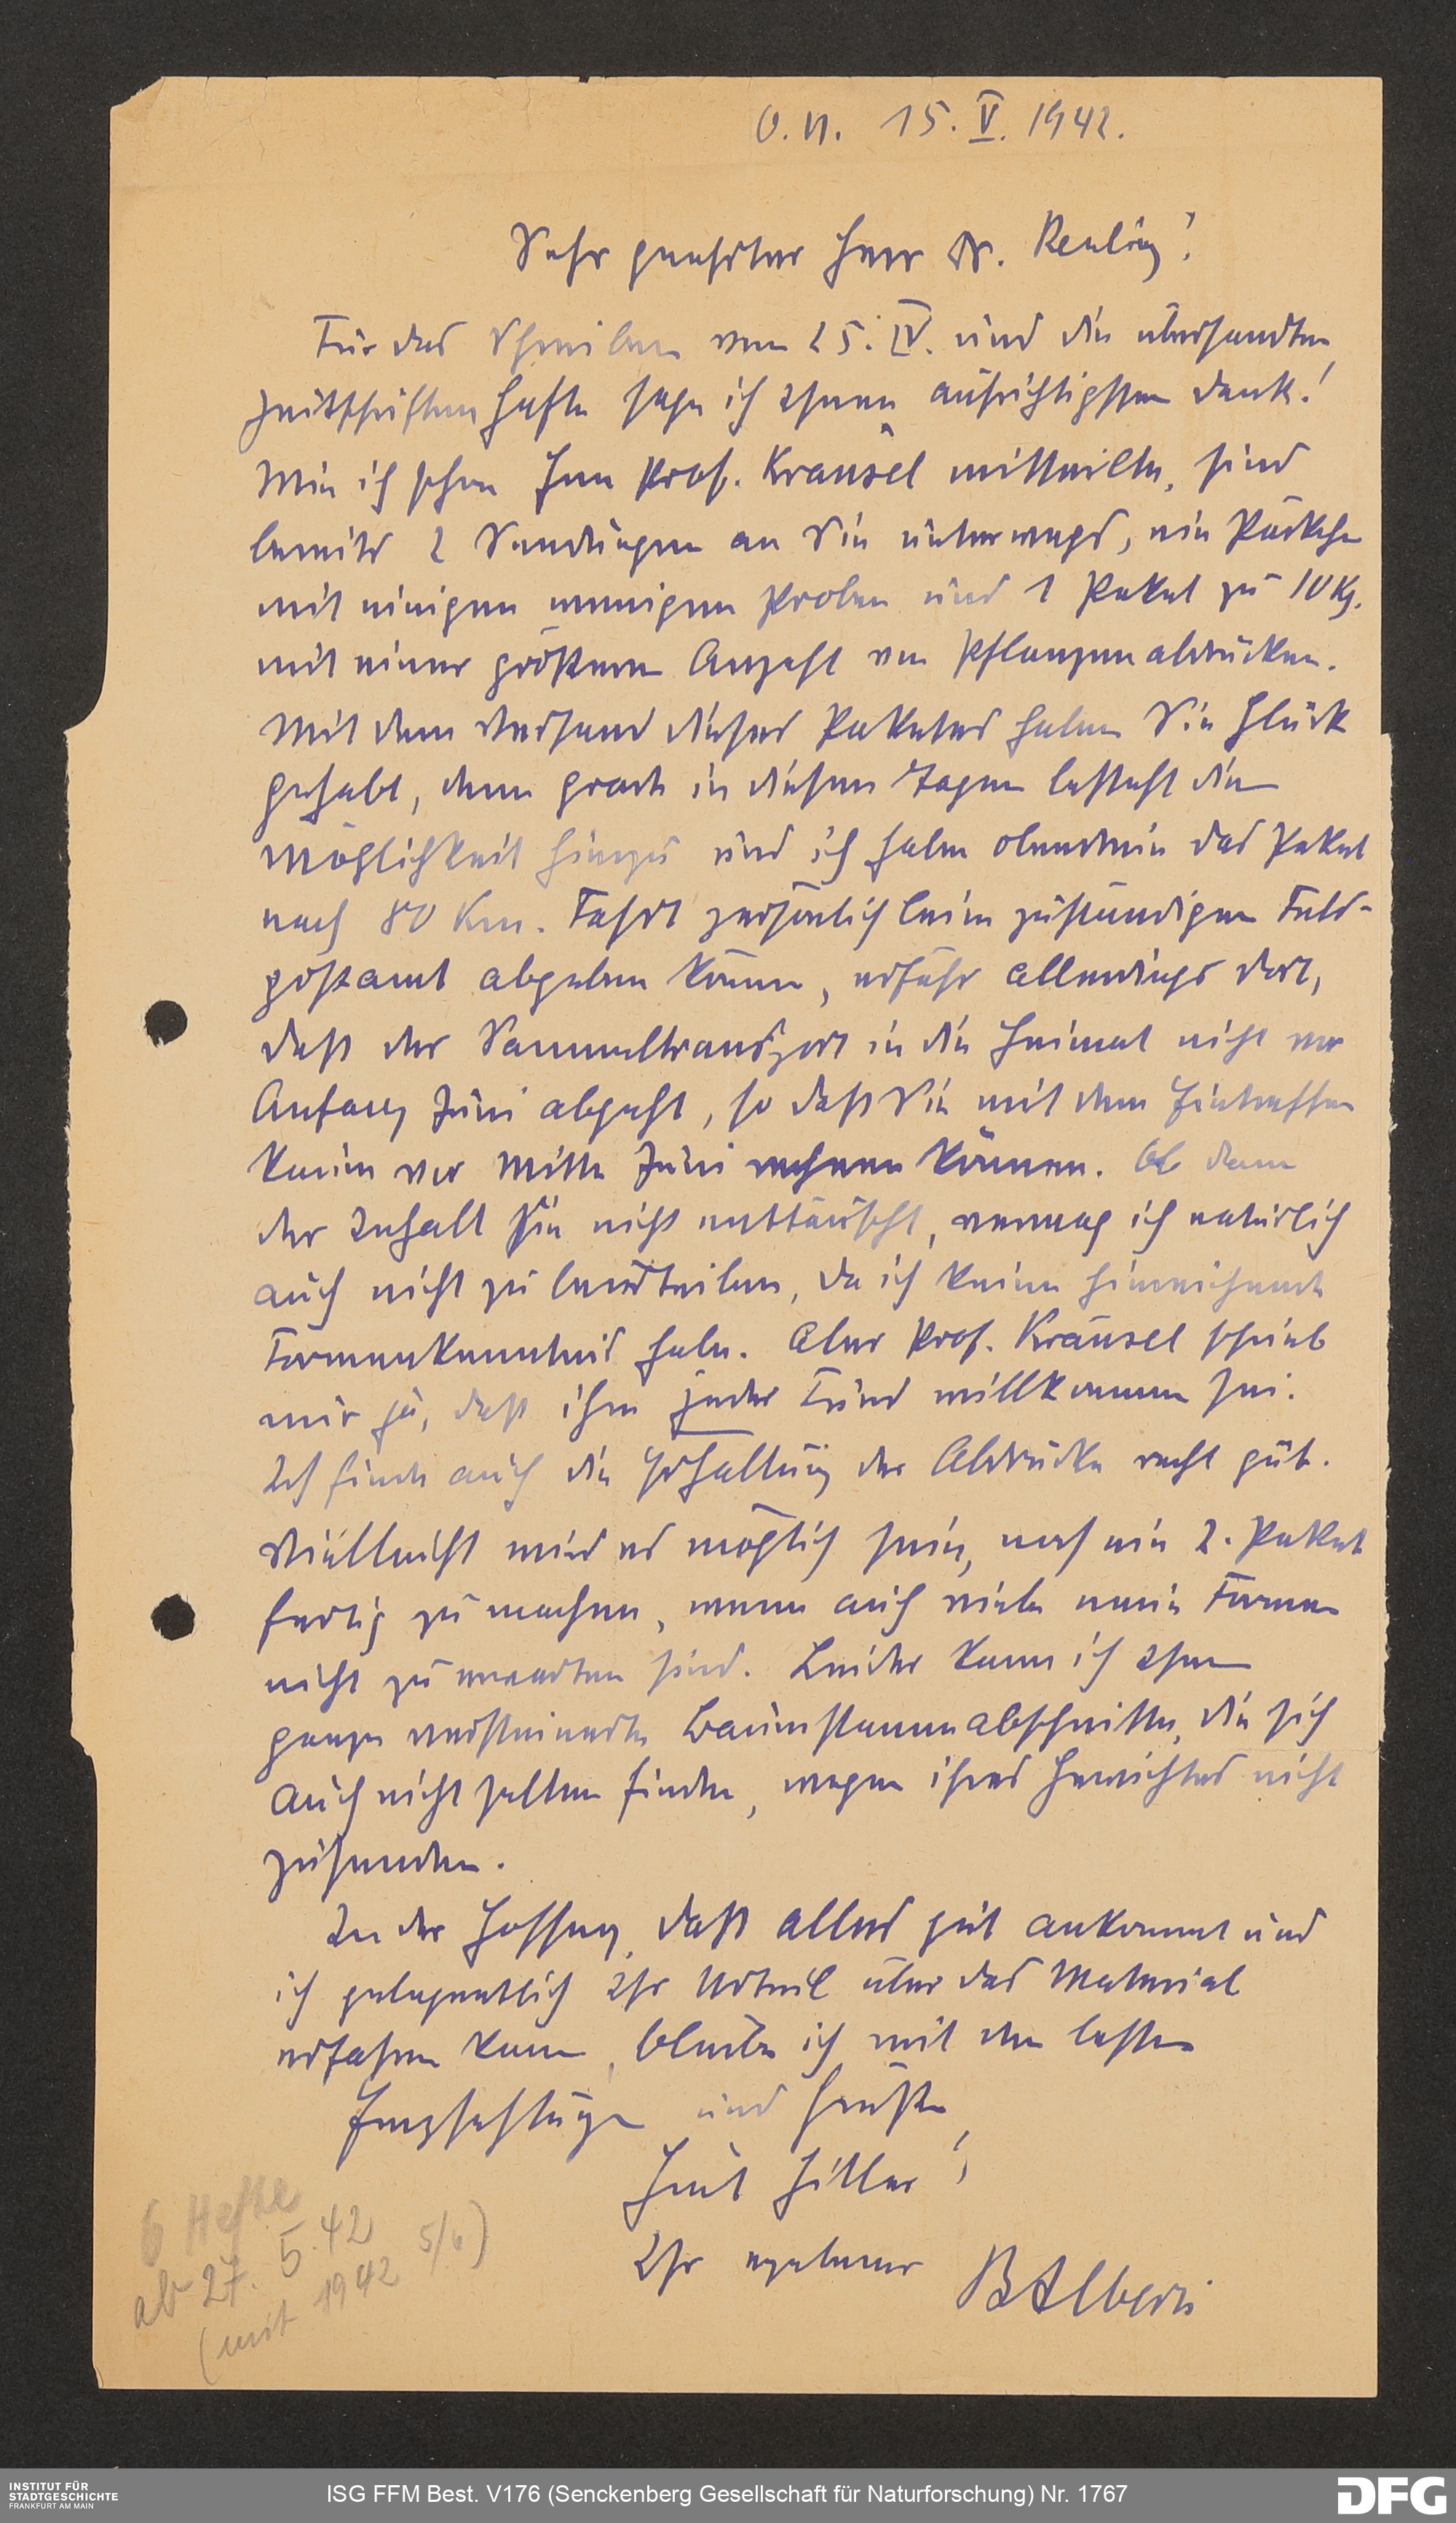 O.U. 15. V. 1942.
Sehr geehrter Herr Dr. Rentzing!
Für das Schreiben vom 25. IV. und die übersandten
Zeitschriftenhefte sage ich Ihnen aufrichtigsten Dank!
Wie ich schon Herrn Prof. Kräusel mitteilte, sind
bereits 2 Sendungen an Sie unterwegs, ein Päckchen
mit einigen wenigen Proben und 1 Paket zu 10 Kg.
mit einer größeren Anzahl von Pflanzenabdrücken.
Mit dem Versand dieses Paketes haben Sie Glück
gehabt, denn grade in diesen Tagen besteht die
Möglichkeit hierzu und ich habe obendrein das Paket
nach 80 Km. Fahrt persönlich beim zuständigen Feld-
postamt abgeben können, erfuhr allerdings dort,
daß der Sammeltransport in die Heimat nicht vor
Anfang Juni abgeht, so daß Sie mit dem Eintreffen
kaum vor Mitte Juni rechnen können. Ob dann
der Inhalt Sie nicht enttäuscht, vermag ich natürlich
auch nicht zu beurteilen, da ich keine hinreichende
Formenkenntnis habe. Aber Prof. Kräusel schrieb
mir ja, daß ihm jeder Fund willkommen sei.
Ich finde auch die Erhaltung der Abdrücke recht gut.
Vielleicht wird es möglich sein, noch ein 2. Paket
fertig zu machen, wenn auch viele neue Formen
nicht zu erwarten sind. Leider kann ich Ihnen
ganze versteinerte Baumstammabschnitte, die sich
auch nicht selten finden, wegen ihres Gewichtes nicht
zusenden.
In der Hoffnung, daß alles gut ankommt und
ich gelegentlich Ihr Urteil über das Material
erfahren kann, bleibe ich mit den besten
Empfehlungen und Grüßen
Heil Hitler!
Ihr ergebener B Alberti
6 Hefte
ab 27. 5. 42
(mit 1942 5/6)
INSTITUT FÜR
STADTGESCHICHTE
FRANKFURT AM MAIN
ISG FFM Best. V176 (Senckenberg Gesellschaft für Naturforschung) Nr. 1767
DFG